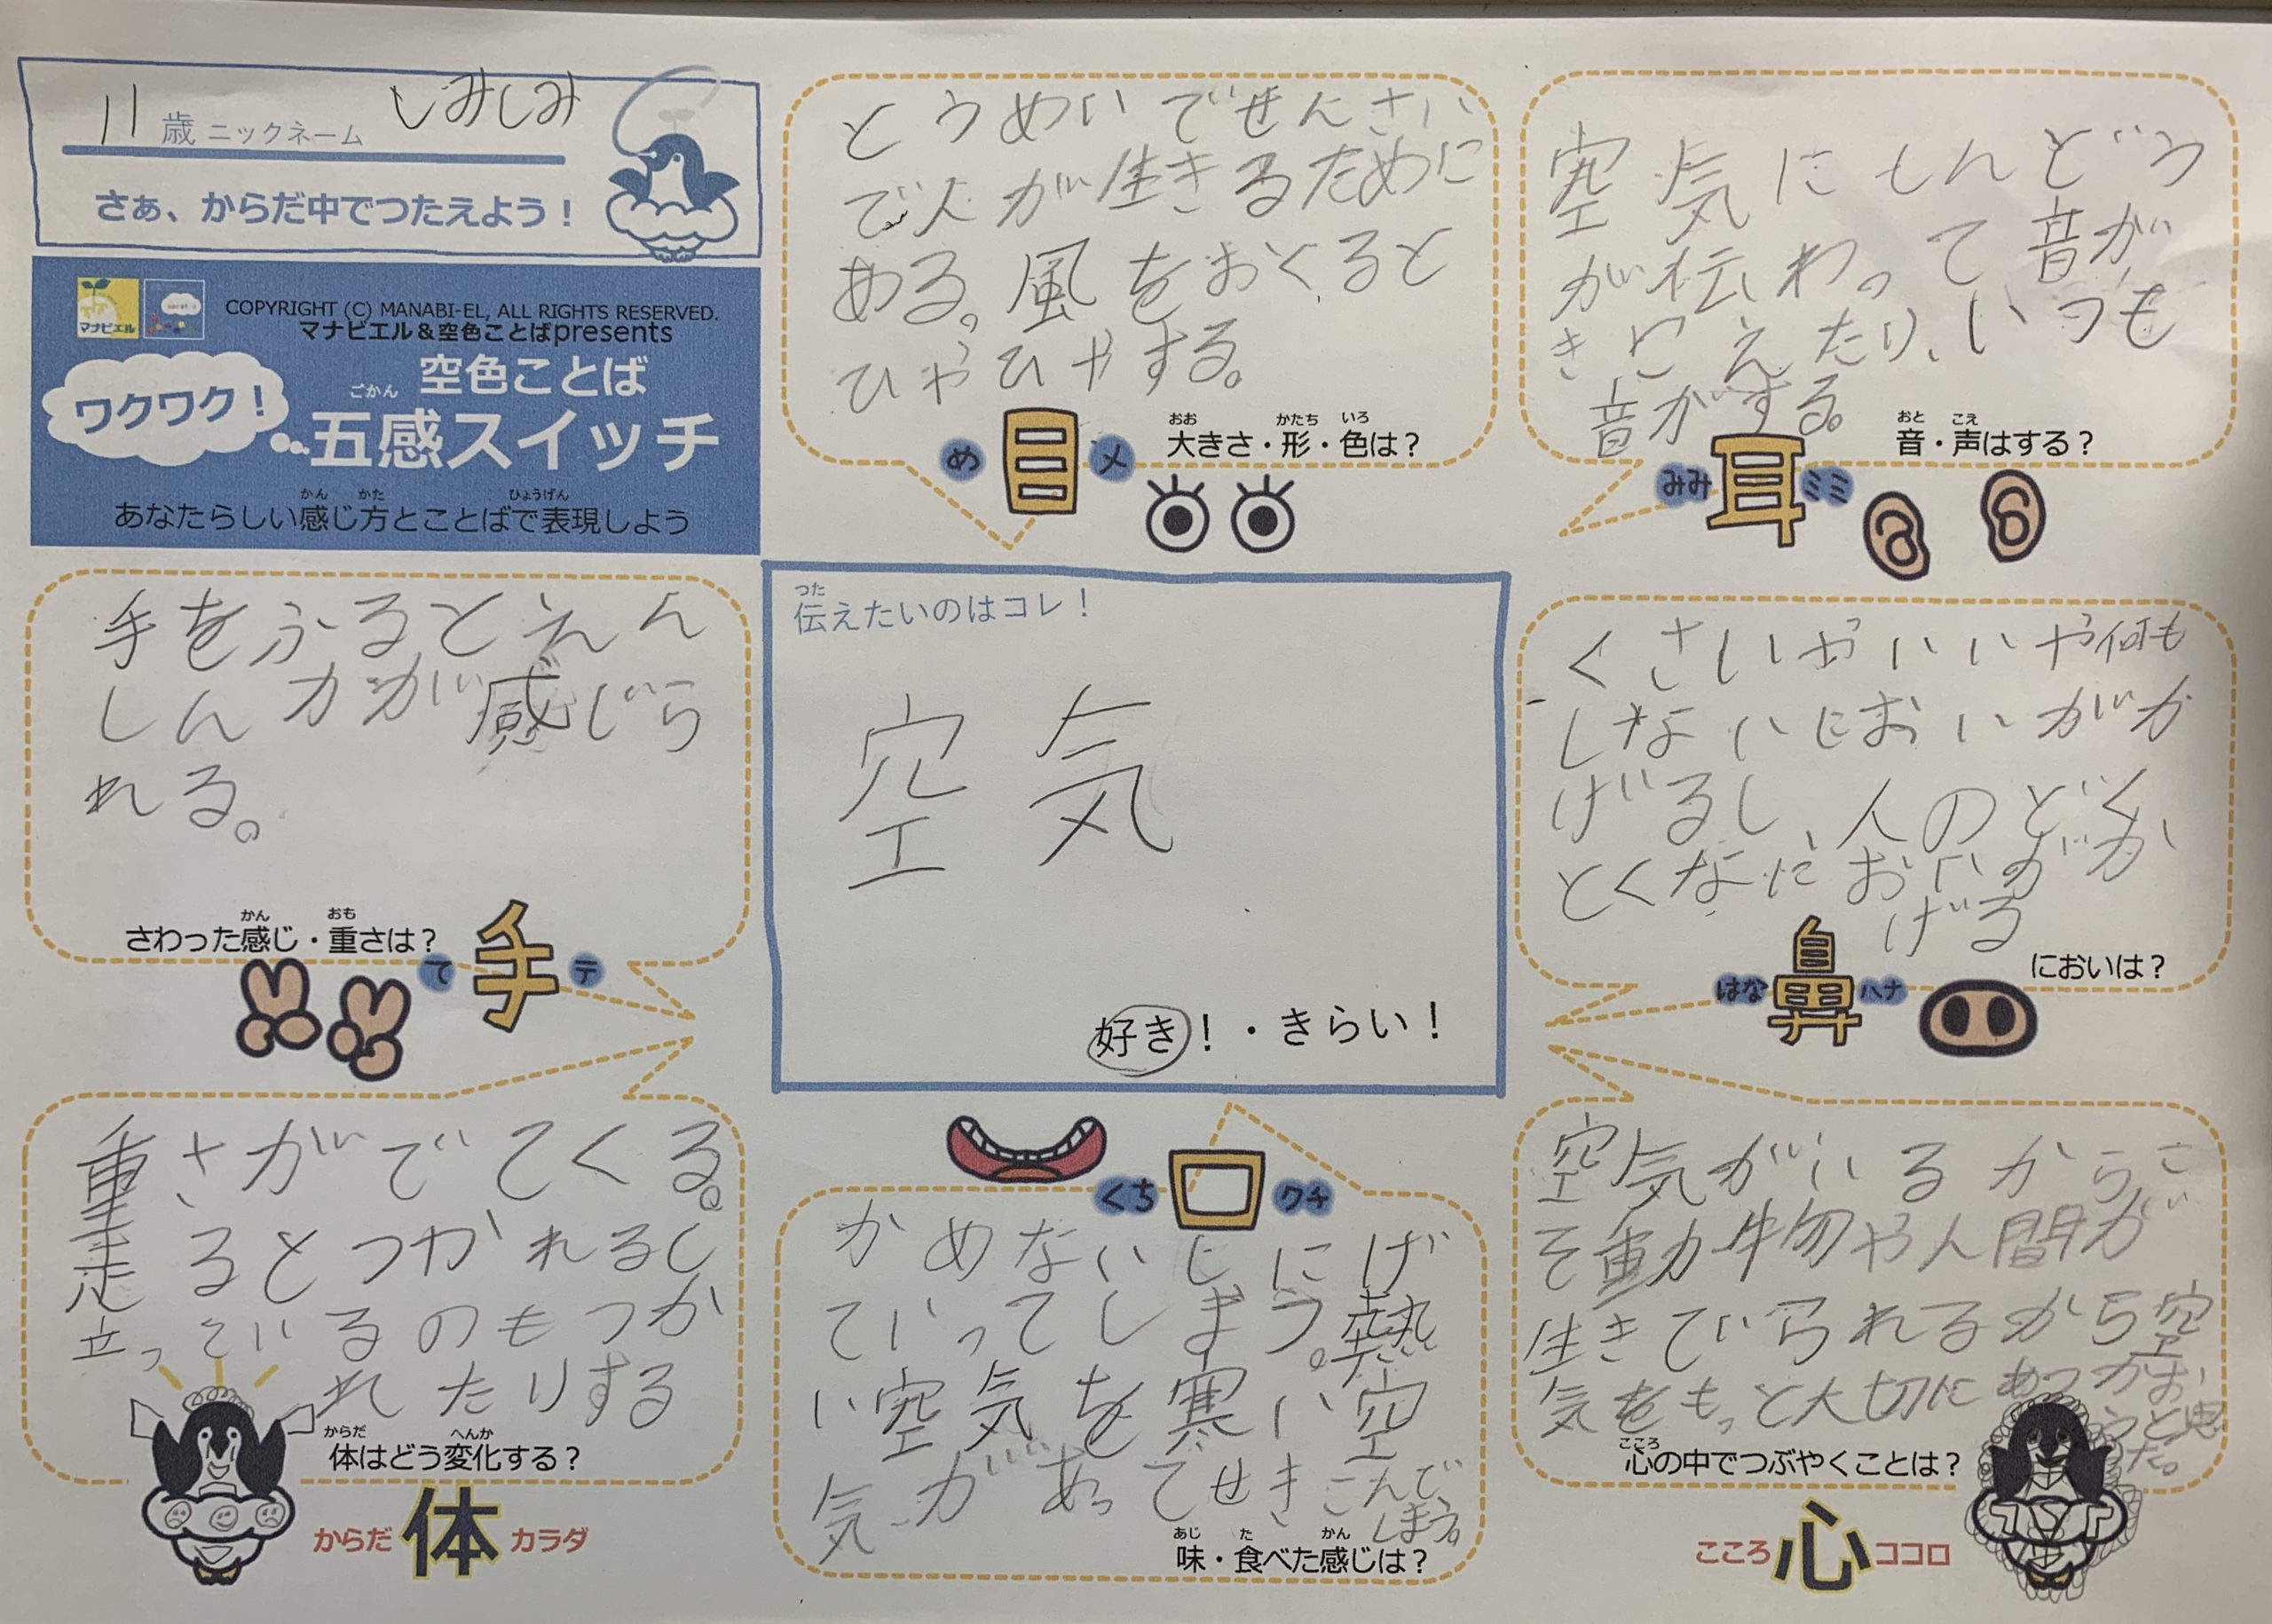 11歳 ニックネーム しみしみ
さぁ、からだ中でつたえよう！
マナビエル
COPYRIGHT (C) MANABI-EL, ALL RIGHTS RESERVED.
マナビエル＆空色ことばpresents
ワクワク！
空色ことば
ごかん
五感スイッチ
かん かた ひょうげん
あなたらしい感じ方とことばで表現しよう
とうめいでせんさい
で人が生きるために
める。風をおくると
ひやひやする。
おお かたち いろ
大きさ・形・色は？
め 目 メ
空気にしんどう
が伝わって音が
きこえたり、いつも
音がする。
おと こえ
音・声はする？
みみ 耳 ミミ
手をふるとえん
しんカが感じら
れる。
かん おも
さわった感じ・重さは？
て 手 テ
つた
伝えたいのはコレ！
空気
好き！・きらい！
くさいやいいや何も
しないにおいがか
げるし、人のどく
とくなにおいがか
げる
においは？
はな 鼻 ハナ
重さがでてくる。
走るとつかれるし
立っているのもつか
れたりする
からだ へんか
体はどう変化する？
からだ 体 カラダ
くち 口 クチ
かめないし、にげ
ていってしまう。熱
い空気を寒い空
気があってせきこんで
しまう。
あじ た かん
味・食べた感じは？
空気がいるからこ
そ動物や人間が
生きていられるから空
気をもっと大切にあつかお
うと思
た。
こころ
心の中でつぶやくことは？
こころ 心 ココロ